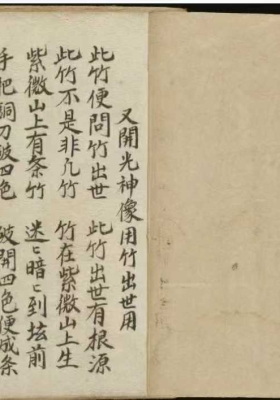 又開光神像用竹出世用
此竹便問竹出世 此竹出世有根源
此竹不是非凢竹 竹在紫微山上生
紫微山上有条竹 迷〻暗〻到坛前
手把銅刀破四色 破開四色便成条